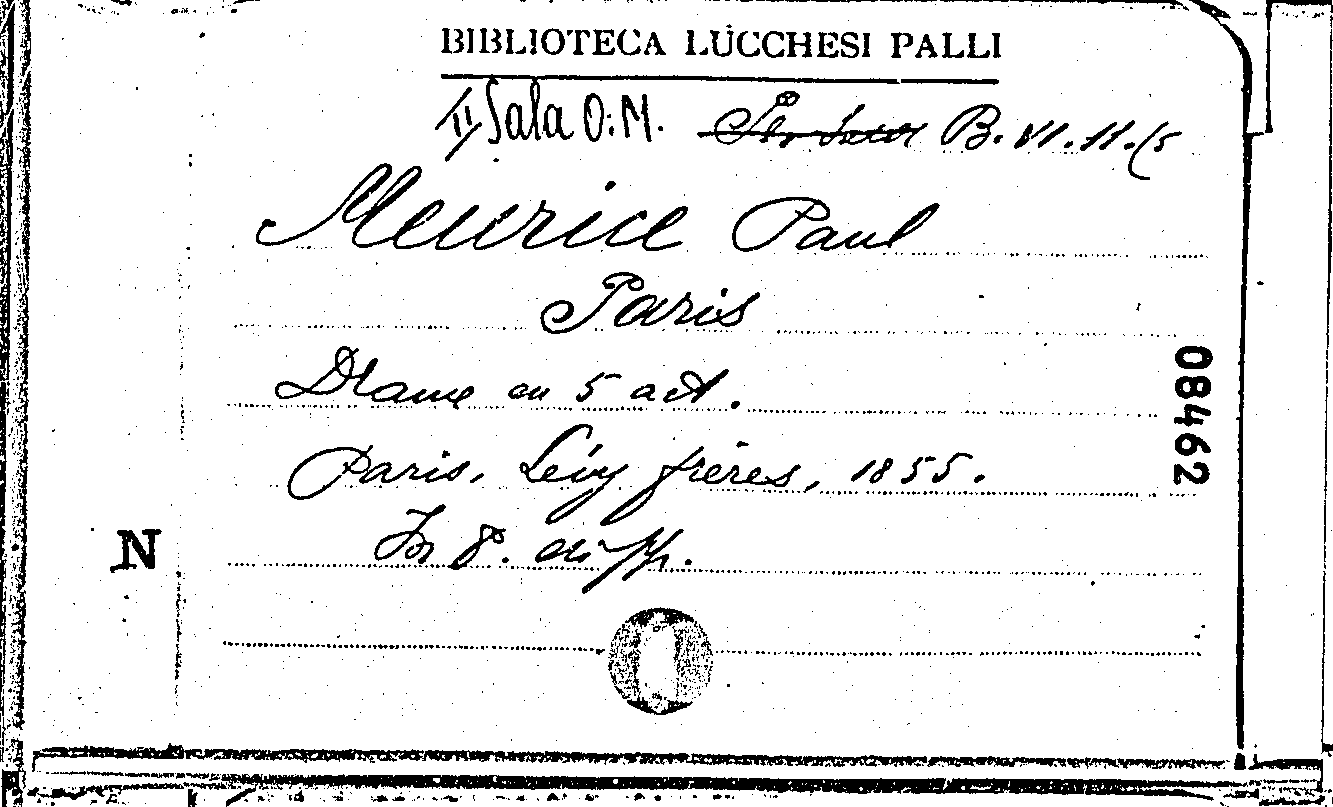 BIBLIOTECA LUCCHESI PALLI
II Sala O. M. B. VI. 11. (5
Meurice Paul
Paris
Drame en 5 act.
Paris, Lévy frères, 1855.
In 8.
N
08462